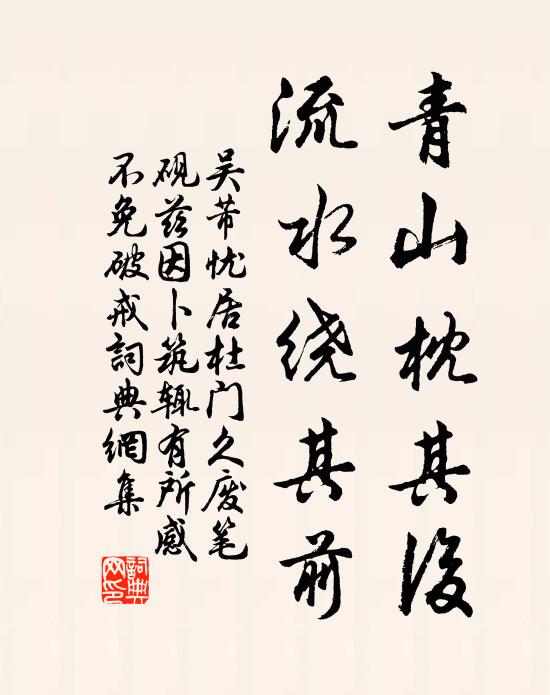 青山枕其後
流水绕其前
吴芾忧居杜门久废笔
砚兹因卜筑辄有所感
不免破戒詞典網集
詞典
网印